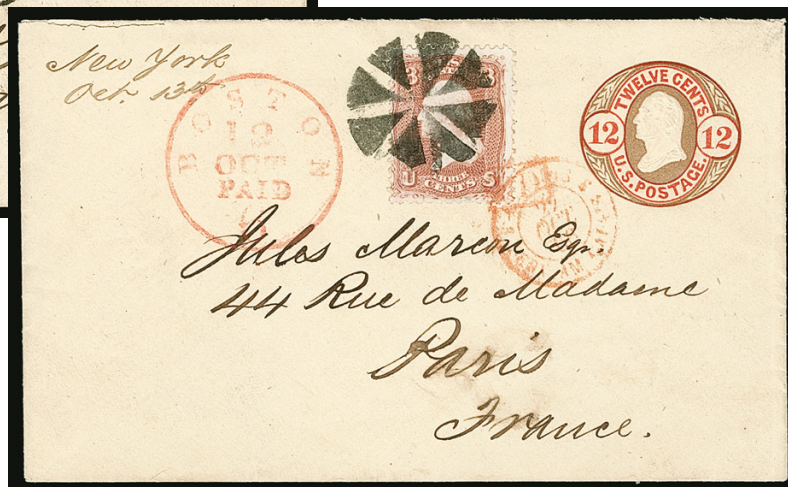 New York
Oct. 13th
BOSTON
12
OCT
PAID
3
3
U
THREE
CENTS
S
TWELVE CENTS
12
12
U.S. POSTAGE.
Jules Marcou Esq.
44 Rue de Madame
Paris
France.